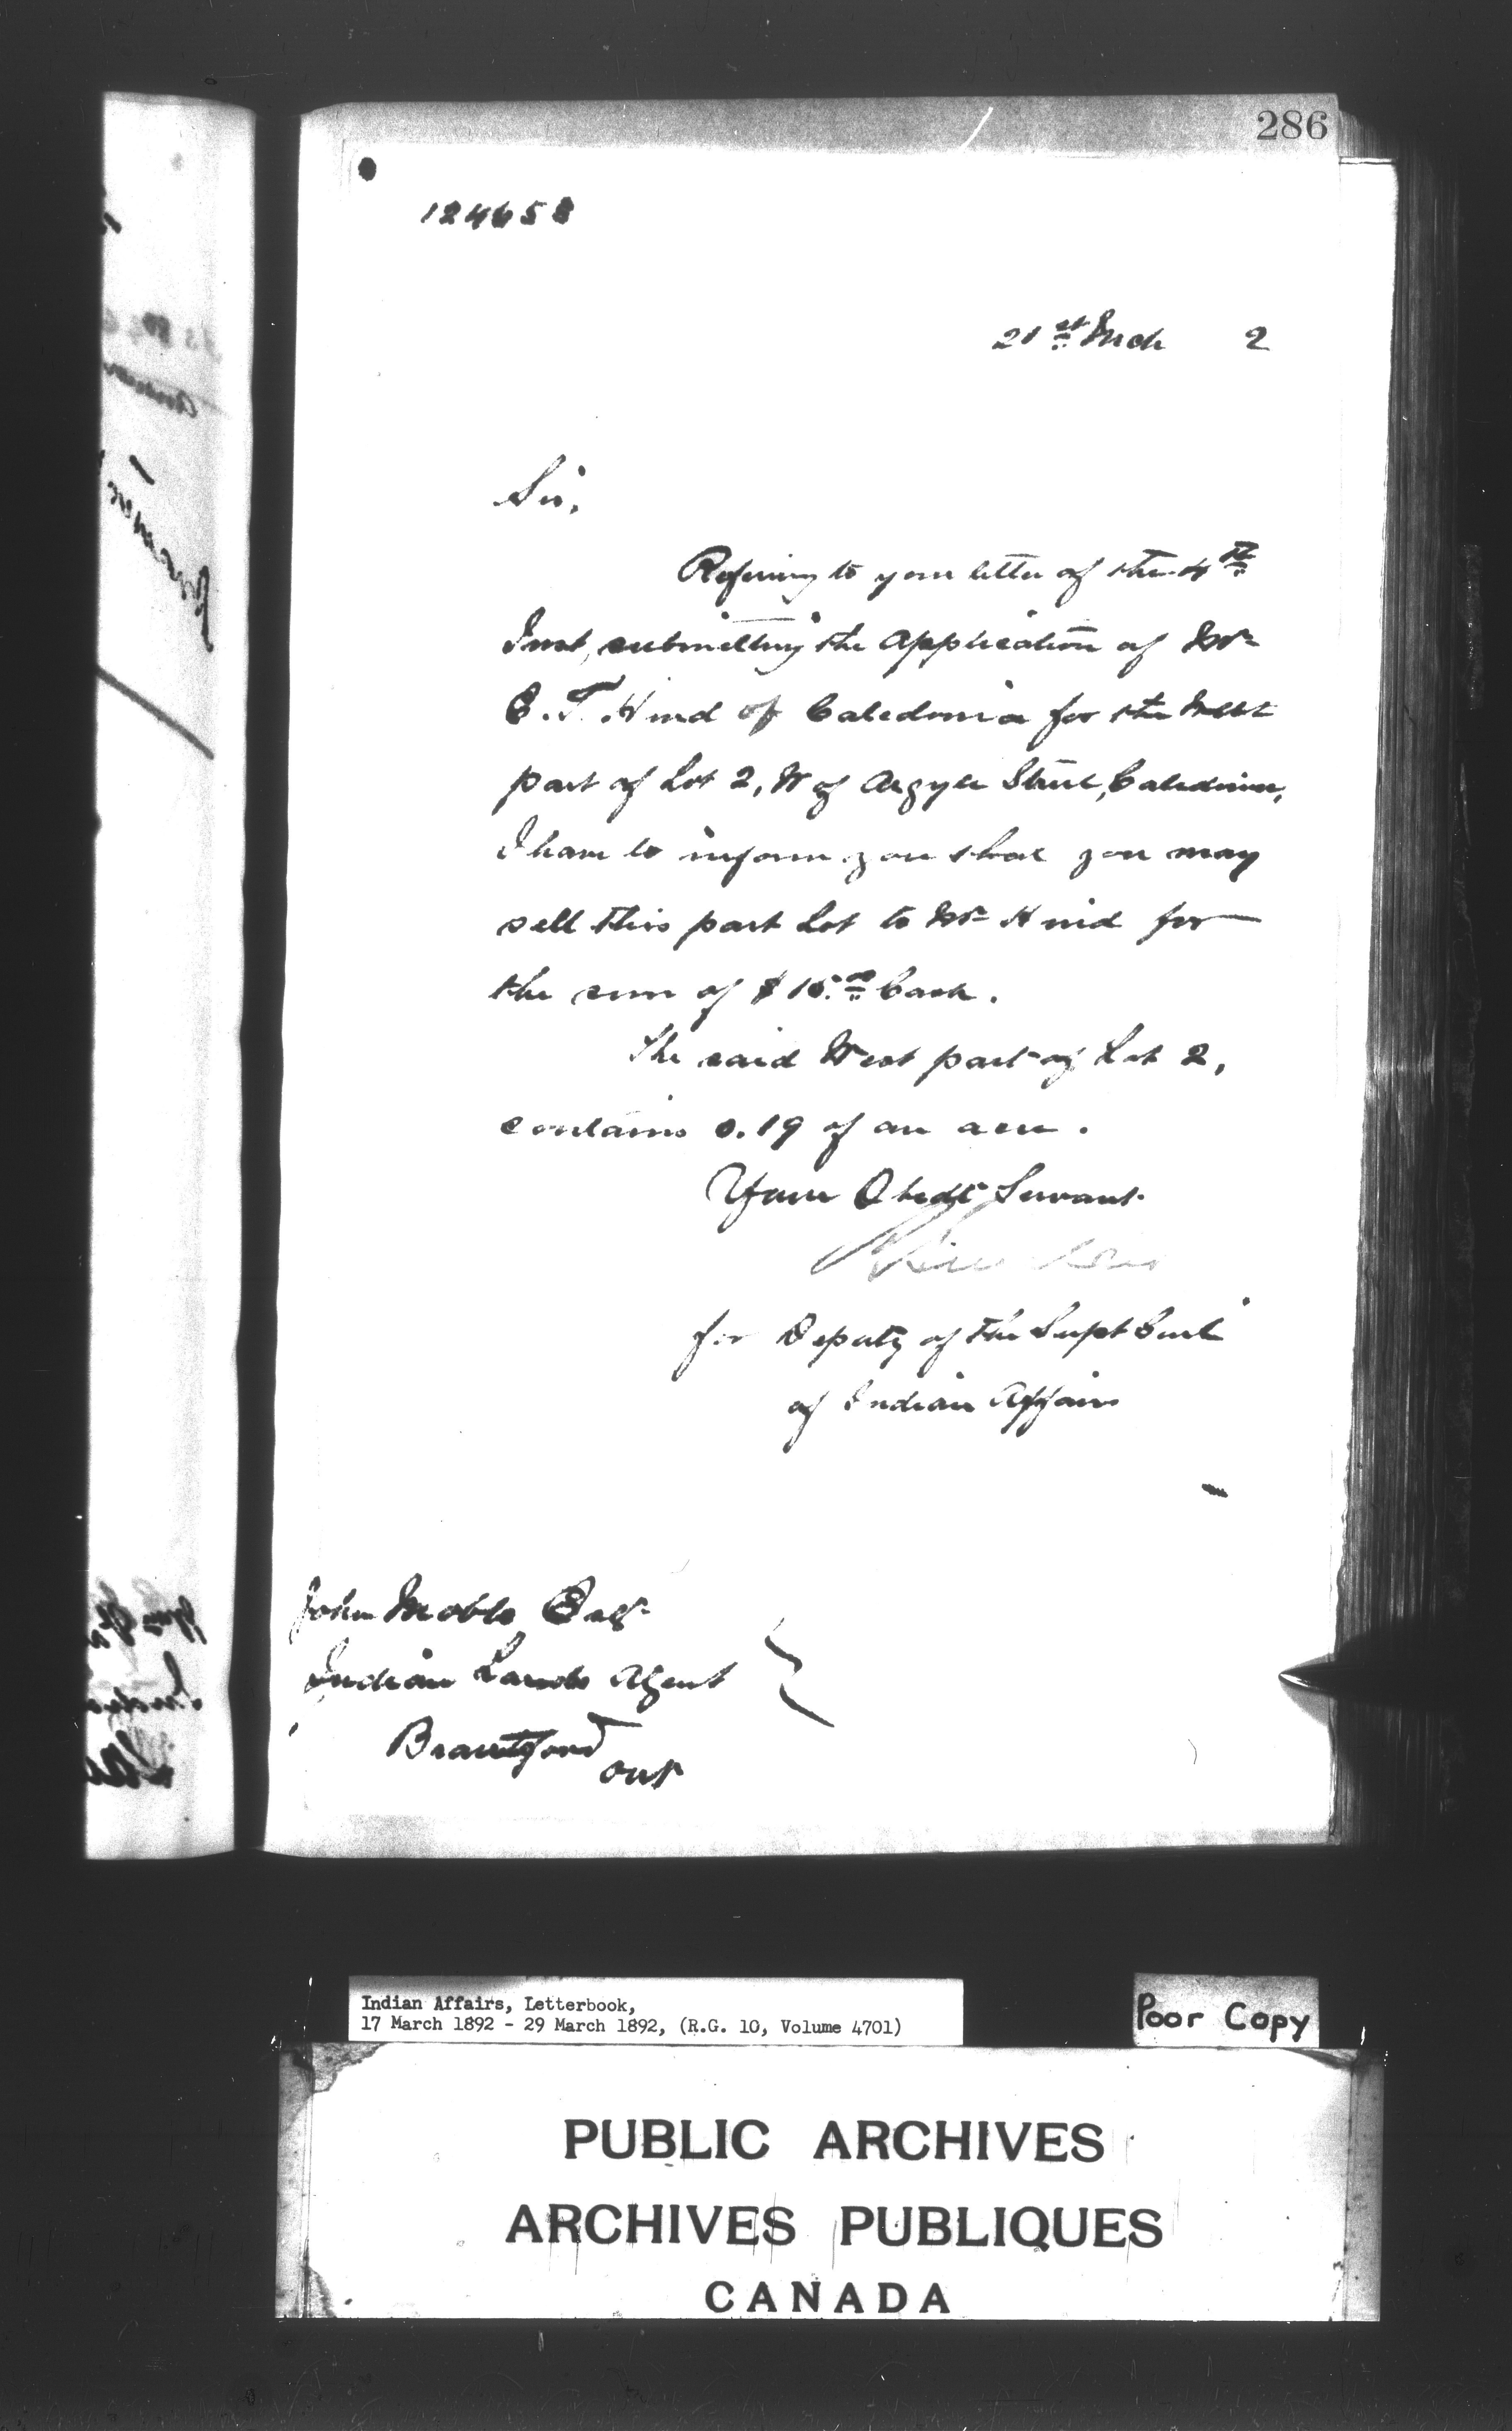 286
124658
21st Mch 2
Sir,
Referring to your letter of the 4th
Inst, submitting the application of Mr
E. T. Hind of Caledonia for the West
part of Lot 2, W of Argyle Street, Caledonia,
I have to inform you that you may
sell this part Lot to Mr Hind for
the sum of $15.00 Cash.
The said West part of Lot 2,
contains 0.19 of an acre.
Your Obedt Servant
for Deputy of the Supt Genl
of Indian Affairs
John Esqr
Indian Lands Agent
Brantford
Ont
Indian Affairs, Letterbook,
17 March 1892 - 29 March 1892, (R.G. 10, Volume 4701)
Poor Copy
PUBLIC ARCHIVES
ARCHIVES PUBLIQUES
CANADA